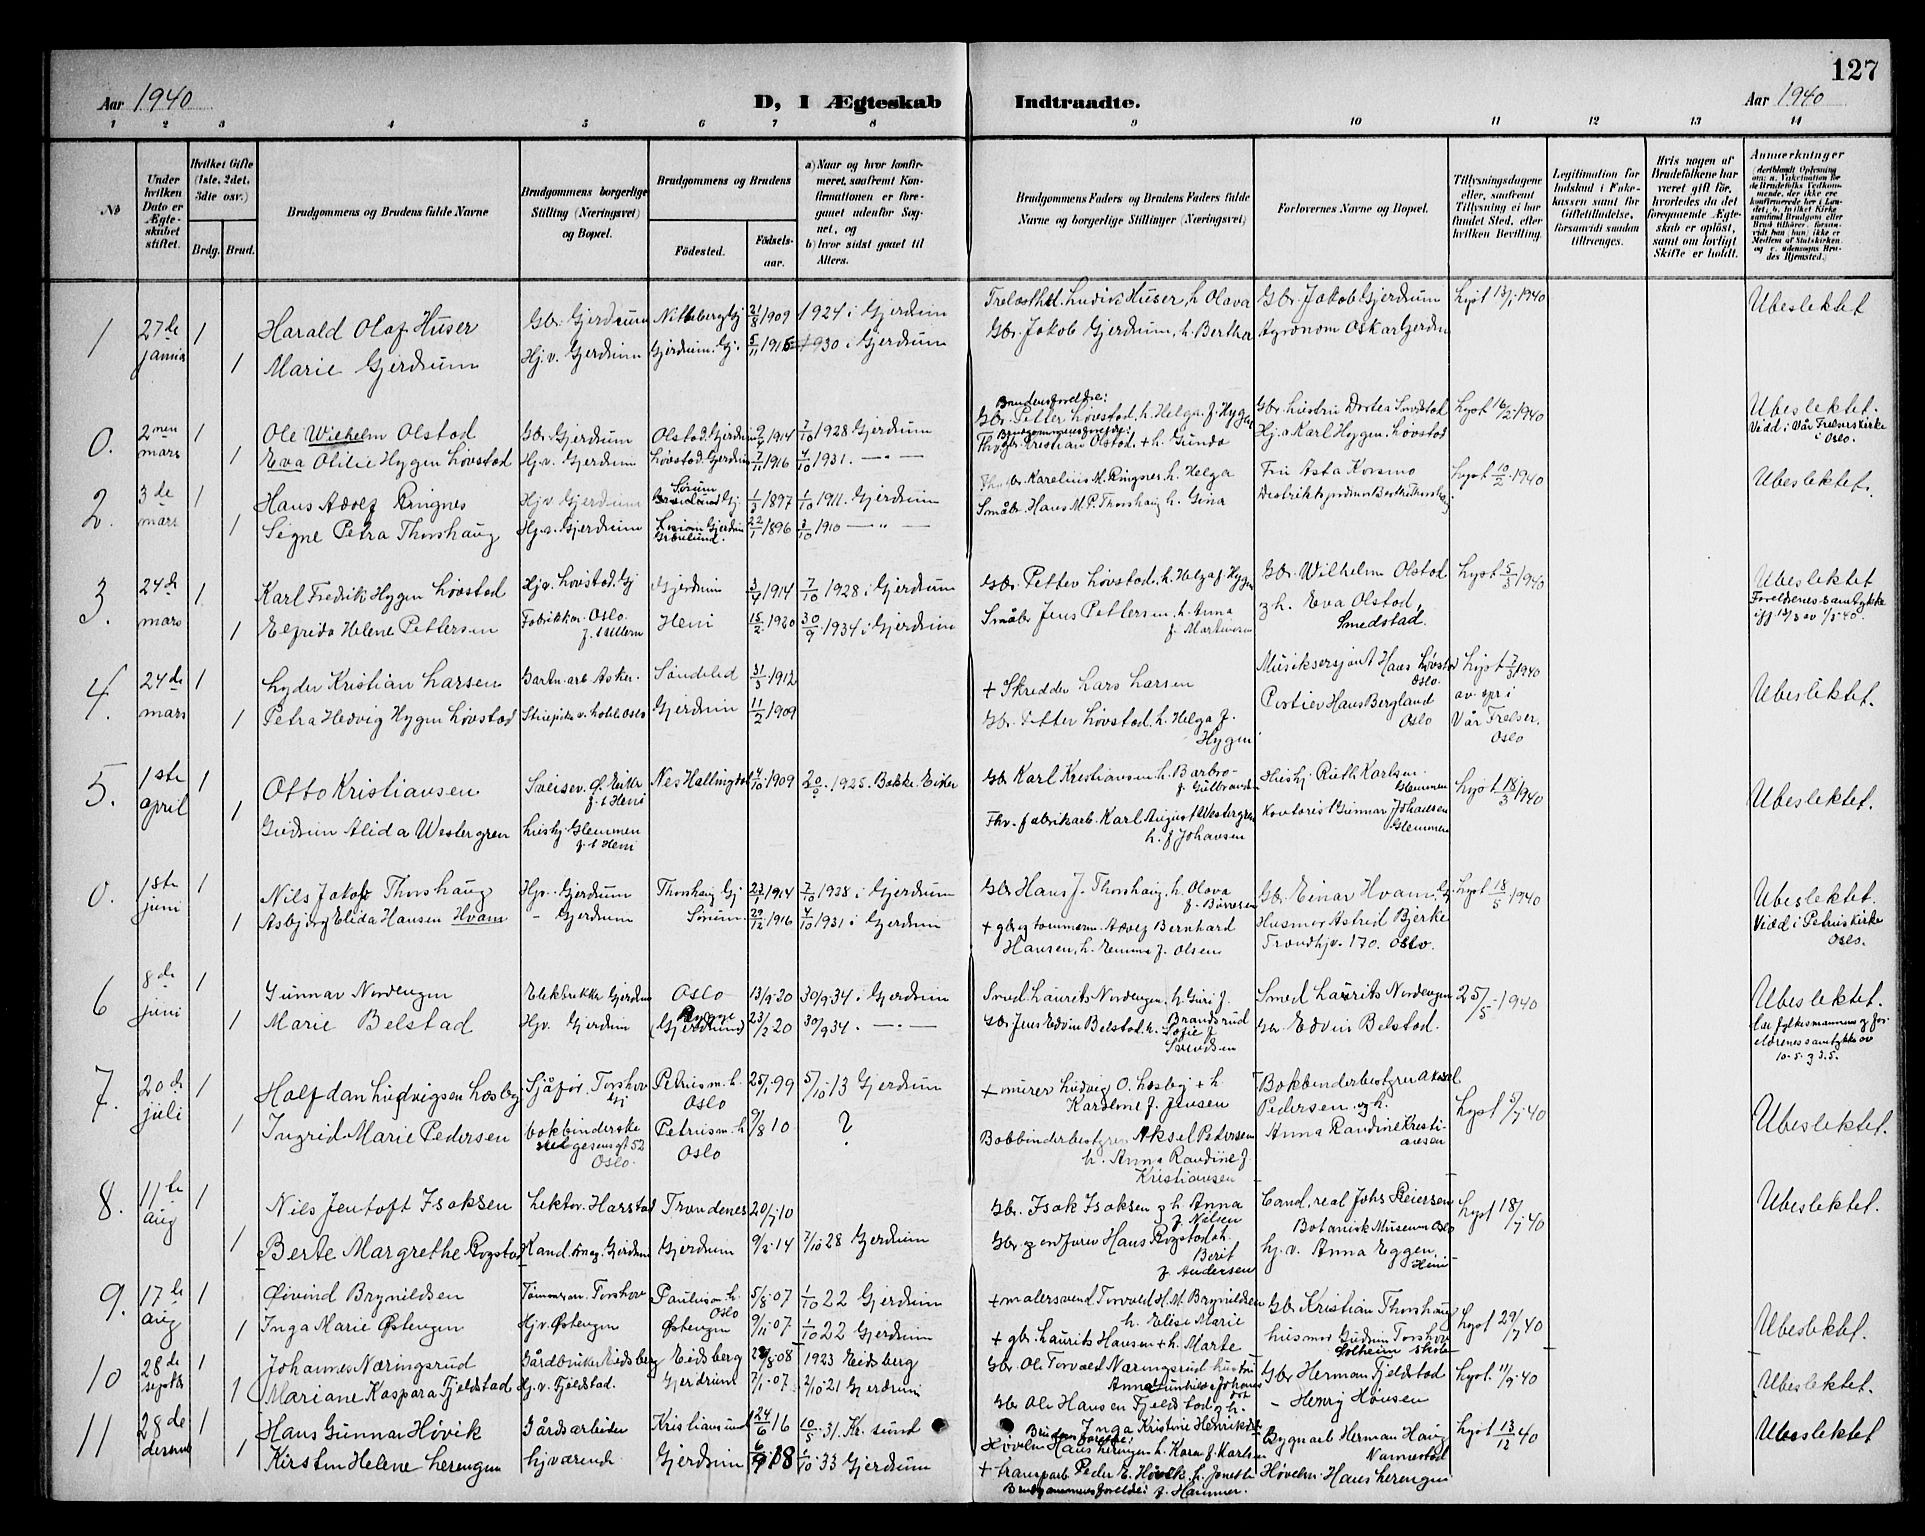 127
Aar 1940
D, I Ægteskab Indtraadte.
Aar 1940
1 2 3 4 5 6 7 8 9 10 11 12 13 14
No
Under hvilken Dato er Ægteskabet stiftet.
Hvilket Gifte (1ste, 2det, 3die osv.)
Brdg. Brud.
Brudgommens og Brudens fulde Navne
Brudgommens borgerlige Stilling (Næringsvei) og Bopæl.
Brudgommens og Brudens
Fødested.
Fødselsaar.
a) Naar og hvor konfirmeret, saafremt Konfirmationen er foregaaet udenfor Sognet, og
b) hvor sidst gaaet til Alters.
Brudgommens Faders og Brudens Faders fulde Navne og borgerlige Stillinger (Næringsvei)
Forlovernes Navne og Bopæl.
Tillysningsdagene eller, saafremt Tillysning ei har fundet Sted, efter hvilken Bevilling.
Legitimation for Indskud i Enkekassen samt for Giftetilladelse, forsaavidt saadan tiltrænges.
Hvis nogen af Brudefolkene har været gift før, hvorledes da det foregaaende Ægteskab er opløst, samt om lovligt Skifte er holdt.
Anmærkninger
1 27de januar 1 Harald Olaf Huser Gbr. Gjerdrum Nitteberg Gj 21/8 1909 1924 i Gjerdrum
Trelasthdl. Ludvik Huser, h. Olava Gbr. Jakob Gjerdrum lyst 13/1 1940 Ubeslektet
1 Marie Gjerdrum Hj.v. Gjerdrum Gjerdrum. Gj. 5/11 1915 1930 i Gjerdrum
Gbr. Jakob Gjerdrum, h. Berthe Agronom Oskar Gjerdrum
0. 2nen mars 1 Ole Wilhelm Olstad Gbr. Gjerdrum Olstad. Gjerdrum 1914 7/10 1928 Gjerdrum
Brudens foreldre:
Gbr. Petter Løvstad, h. Helga f. Hygen Gbr. hustru Dortea Smedstad lyst 16/2 1940 Ubeslektet.
1 Eva Otilie Hygen Løvstad Hj.v. Gjerdrum Løvstad. Gjerdrum 7/11 1916 4/10 1931. — " —
Brudgommens foreldre:
Gbr. Kristian Olstad, + h. Gunda Hj. a Karl Hygen Løvstad Viëd i Vår Frelsers Kirke i Oslo.
2. 3de mars 1 Hans Adolf Ringnes Hj.v Gjerdrum Sørum Gj. 1/3 1897 1/10 1911. Gjerdrum
Karelius M. Ringnes, h. Helga Fru Asta Korsmo lyst 10/2 1940 Ubeslektet.
1 Signe Petra Thorshaug Hj.v. Gjerdrum Gjerdrum Grønlund. 22/1 1896 2/10 1910 — " —
Småbr. Hans M. P. Thorshaug h. Gina
3. 24de mars 1 Karl Fredrik Hygen Løvstad Hj.v. Løvstad. Gj Gjerdrum 3/4 1914 7/10 1928 i Gjerdrum
Gbr. Petter Løvstad, h. Helga f. Hygen Gbr. Wilhelm Olstad lyst 5/3 1940 Ubeslektet
1 Elfrida Helene Pettersen Fabrikkar. Oslo. Heni 15/2 1920 30/9 1934 i Gjerdrum
Småbr. Jens Pettersen, h. Anna f. Martinsen g h. Eva Olstad, Smedstad. Foreldrenes samtykke
4. 24de mars 1 Lyder Kristian Larsen Gartn. arb Asker. Søndeled 31/3 1912
+ Skredder Lars Larsen Musiksersjant Hans Løvstad Oslo. lyst 7/3 1940 Ubeslektet.
1 Petra Hedvig Hygen Løvstad Oslo Gjerdrum 11/2 1909
Gbr. Petter Løvstad, h. Helga f. Hygen Portier Hans Bergland Oslo av spr i Vår Frelser. Oslo
5. 1ste april 1 Otto Kristiansen Sveisev. Ø. Eiker f. t Heni Nes Hallingdal 4/10 1909 1925. Bakke. Eiker
Gbr. Karl Kristiansen h. Barbro f. Gulbrandsen Hushj. Ruth Karlsen Glemmen lyst 18/3 1940 Ubeslektet.
1 Gudrun Alida Westergren Hushj. Glemmen f. t Heni
Fhv. fabrikarb. Karl August Westergren h. f Johansen Kontorist Gunnar Johansen Glemmen
0. 1ste juni 1 Nils Jakob Thorshaug Hjv. Gjerdrum Thorshaug Gj 23/7 1914 7/10 1928 i Gjerdrum
Gbr. Hans J. Thorshaug, h. Olava Gbr. Einar Hvam, Gj. lyst 18/5 1940 Ubeslektet.
1 Asbjørg Elida Hansen Hvam - Gjerdrum Sørum. 29/12 1916 4/10 1931 i Gjerdrum
+ gbr og tømmerm. Adolf Bernhard Hansen, h. Emma f. Olsen Husmor Astrid Bjerke Trondhjv. 170. Oslo. Viëd i Petruskirke Oslo.
6 8de juni 1 Gunnar Nordengen Elektrikker Gjerdrum Oslo 13/9-20 30/9.34 i Gjerdrum
Smed Laurits Nordengen, h. Guri f. Brandsrud Smed Laurits Nordengen 25/5 1940 Ubeslektet.
1 Marie Belstad Hjv. Gjerdrum Rygge (Gjerdrum) 23/2 20 30/9 34. — " —
Gbr. Jens Edvin Belstad, h. Sofie f. Svendsen Gbr. Edvin Belstad.
fylkesmannens og foreldrenes samtykke av 10-5. g 3.5.
7. 20de juli 1 Halfdan Ludvigsen Løsby Sjåfør. Torshov Gj Petrus m. h. Oslo 25/1.99 5/10 13 Gjerdrum
+ murer Ludvig O. Løsby + h. Karoline f. Jensen Bokbinderbestyrer Aksel Pedersen og h. Anna Randine Kristiansen lyst 5/7 40 Ubeslektet.
1 Ingrid Marie Pedersen bokbinderske Oslo. Petrus m. h Oslo 9/8 10 ?
Bokbinderbestyrer Aksel Pedersen h. Anna Randine f. Kristiansen
8. 11te aug 1 Nils Jentoft Isaksen Lektor. Harstad Trondenes 20/7 10
Gbr. Isak Isaksen g h Anna f Nilsen Cand. real Johs Reiersen Botanisk Museum Oslo lyst 18/7 40 Ubeslektet.
1 Berte Margrethe Rogstad Kand. mag. Gjerdrum Gjerdrum 9/2 14 7/10 28 Gjerdrum
Gbr. g Hans Rogstad h. Berit f. Andersen hj. v. Anna Eggen. Heni
9. 17de aug 1 Øivind Brynildsen Torshov Paulus m. h. Oslo 5/8. 07 1/10 22 Gjerdrum
+ malersvend Torvald H. M. Brynildsen h. Elise Marie Gbr. Kristian Thorshaug lyst 29/7 40 Ubeslektet.
1 Inga Marie Østengen Hj.v. Østengen Østengen 9/11. 07 1/10 22 Gjerdrum
+ gbr. Laurits Hansen + h. Marte husmor Gudrun Torshov Solheim skole
10 28de septbr 1 Johannes Næringsrud Gårdbruker Eidsberg Eidsberg 08 1923 Eidsberg
Gbr. Ole Torvald Næringsrud hustru Anna Gunhilda Johansdtr Gbr. Herman Fjeldstad lyst. 11/9. 40 Ubeslektet.
1 Mariane Kaspara Fjeldstad Hj. v. Fjeldstad. Gjerdrum 7/1. 07 2/10 21 Gjerdrum
Gbr. Ole Hansen Fjeldstad g h. Inga Kristine Henriksdtr - Henry Hønsen
11 28de desemb 1 Hans Gunnar Høvik Gårdsarbeider Kristiansund 24/6 16 10/5. 31. Kr. sund
Brudens foreldre:
Høvelm Hans Lerengen h. Kara f. Karlsen Bygnarb Herman Haug Nannestad lyst 13/12 40 Ubeslektet
1 Kirsten Helene Lerengen hjværende Gjerdrum 18 1/10 33 Gjerdrum
+ transparb Peder E. Høvik h. Jonette f. Hammer. Høvelm. Hans Lerengen
Brudgommens foreldre: